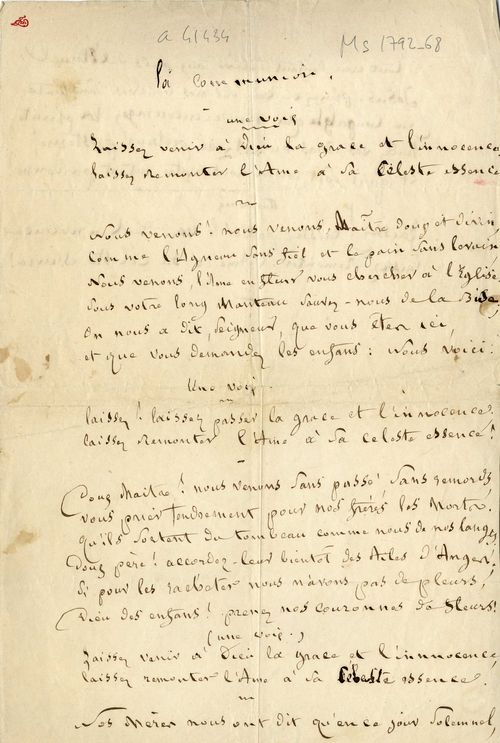 a 41434
Ms 1792-68
La communion.
une voix
Laissez venir à Dieu la grace et l'innocence
laissez remonter l'Ame à sa Céleste essence
Nous venons! nous venons, Maître doux et divin,
comme l'Agneau sans fiel et le pain sans levain,
Nous venons, l'Ame en fleur vous chercher à l'Eglise
sous votre long Manteau sauvez-nous de la Bise,
On nous a dit, Seigneur, que vous êtes ici,
et que vous demandez les enfans: nous voici.
Une voix.
laissez! laissez passer la grace et l'innocence.
laissez remonter l'Ame à sa celeste essence!
Doux Maître! nous venons sans passé sans remords
vous prier tendrement pour nos frères les Morts.
Qu'ils sortent du tombeau comme nous de nos langes,
Doux père! accordez-leur bientôt des Ailes d'Anges;
Si pour les racheter nous n'avons pas de pleurs,
Dieu des enfans! prenez nos couronnes de fleurs!
(une voix.)
Laissez venir à Dieu la grace et l'innocence
laissez remonter l'Ame à sa Céleste essence.
Nos Mères nous ont dit qu'en ce jour solemnel,